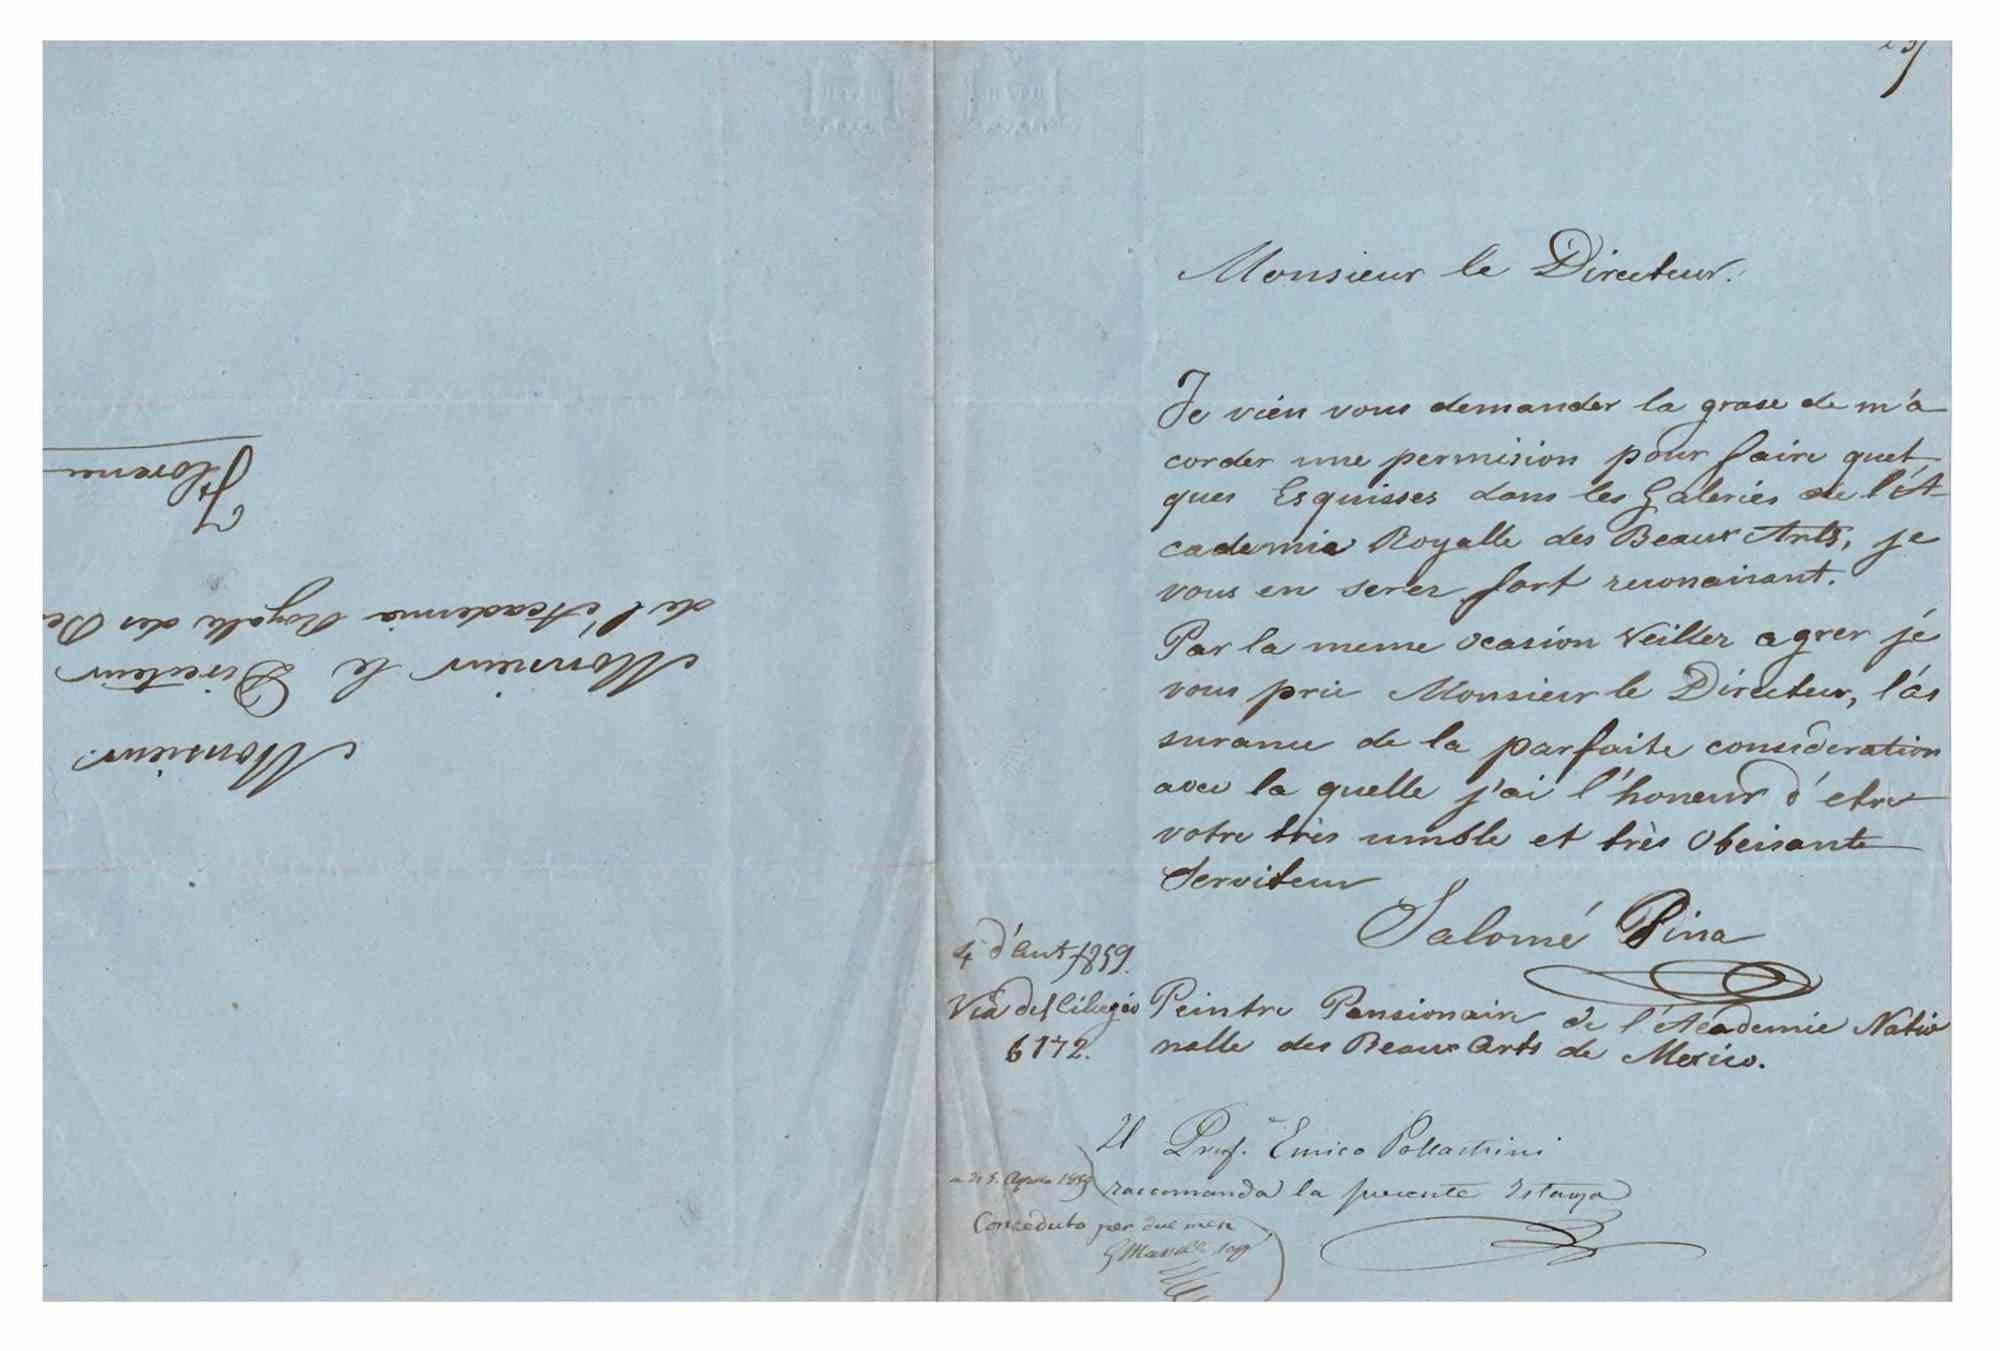 Monsieur le Directeur.
Je vién vous demander la grase de m'a
corder une permision pour faire quel
ques Esquisses dans les Galeriés de l'A-
cademie Royalle des Beaux Arts, je
vous en serez fort reconaisant.
Par la meme ocasion veillez agrer je
vous prie Monsieur le Directeur, l'as
surance de la parfaite consideration
avec la quelle j'ai l'honeur d'etre
votre très umble et très obeisante
Serviteur
Salomé Pina
4 d'Aut 1859.
Via del Ciliegio
6172.
Peintre Pensionaire de l'Academie Natio
nalle des Beaux Arts de Mexico.
Il Prof. Enrico Pollastrini
raccomanda la presente Istanza
a di 5. Agosto 1859
Conceduto per due mesi
Monsieur.
Monsieur le Directeur
de l'Academia Royale des Be
Florence